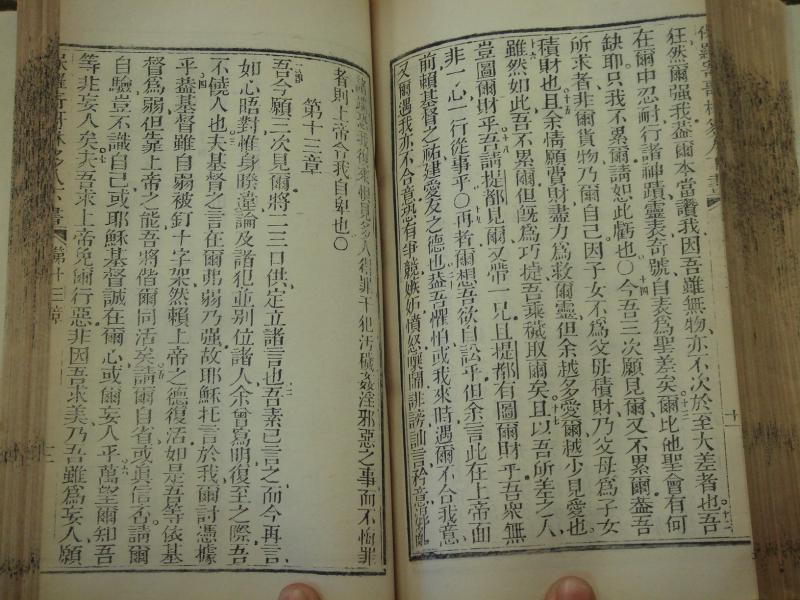 狂然爾强我盖爾本當讚我因吾雖無物亦不次於至大差者也吾
在爾中忍耐行諸神蹟靈表奇號自表為聖差矣爾比他聖會有何
缺耶只我不累爾請恕此虧也〇今吾三次願見爾又不累爾盖吾
所求者非爾貨物乃爾自己因子女不為父母積財乃父母為子女
積財也且余情願費財盡力為救爾靈但余越多愛爾越少見愛也
雖然如此吾不累爾但旣為巧捷吾乗𧫴取爾矣且以吾所差之人
豈圖爾財乎吾請提都見爾又帶一兄且提都有圖爾財乎吾衆無
非一心一行從事乎〇再者爾想吾欲自訟乎但余言此在上帝面
前賴基督之祐建愛友之德也盖吾懼怕或我來時遇爾不合我意
又爾遇我亦不合意恐有爭競嫉妒憤怒嚷鬧誹謗訕言矜意
者則上帝令我自卑也〇
第十三章
吾今願三次見爾將二三口供定立諸言也吾素已言之而今再言
如心晤對惟身暌違論及諸犯並別位諸人余曾為明復至之際吾
不饒人也夫基督之言在爾弗弱乃强故耶穌托言於我爾討憑據
乎盖基督雖自弱被釘十字架然賴上帝之德復活如是吾等依基
督為弱但靠上帝之能吾將偕爾同活矣請爾自省或真信否請爾
自驗豈不識自己或耶穌基督誠在爾心或爾妄人乎萬望爾知吾
等非妄人矣夫吾求上帝免爾行惡非因吾求美乃吾雖為妄人願
第十三章